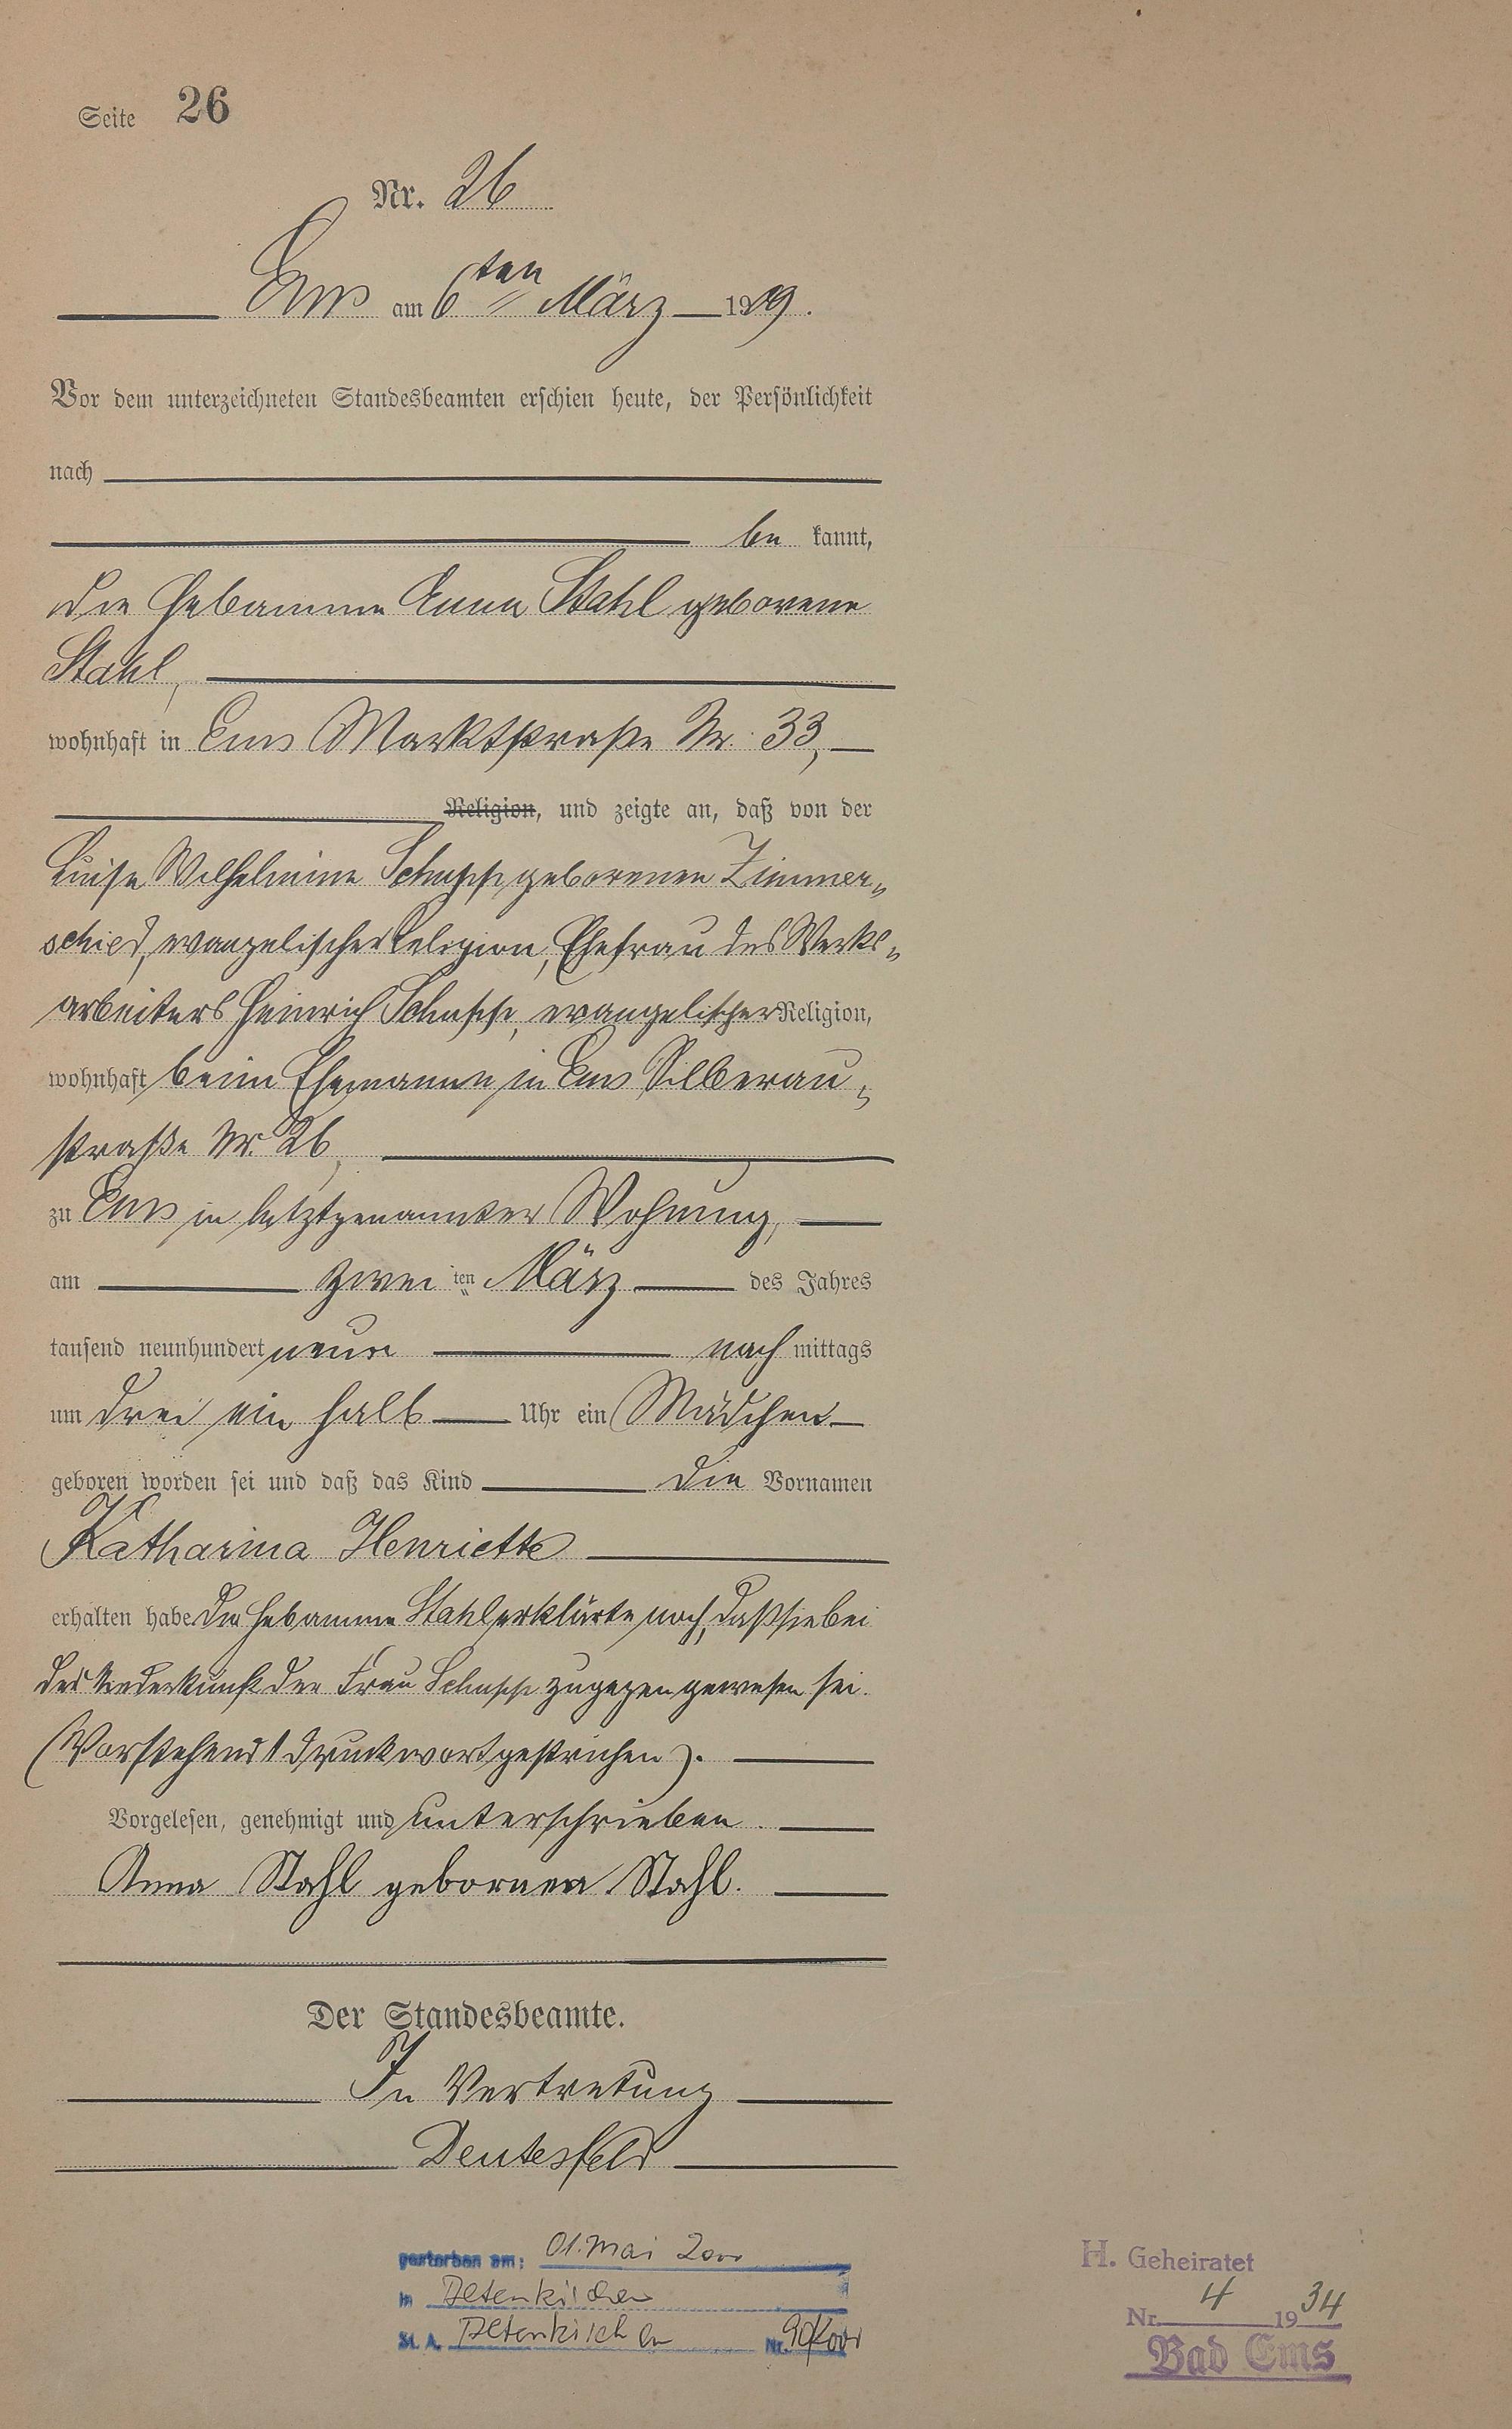 Seite 26
Nr. 26
Ems am 6ten März 1909.
Vor dem unterzeichneten Standesbeamten erschien heute, der Persönlichkeit
nach
be kannt,
die Hebamme Anna Stahl geborene
Stahl,
wohnhaft in Ems Marktstraße Nr. 33,
Religion, und zeigte an, daß von der
Luise Wilhelmine Schupp geborenen Zimmer-
schied, evangelischer Religion, Ehefrau des Werks-
arbeiters Heinrich Schupp, evangelischer Religion,
wohnhaft beim Ehemanne in Ems Silberau-
straße Nr. 26,
zu Ems in letztgenannter Wohnung,
am zwei ten März des Jahres
tausend neunhundert neun nach mittags
um drei ein halb Uhr ein Mädchen
geboren worden sei und daß das Kind die Vornamen
Katharina Henriette
erhalten habe. Die Hebamme Stahl erklärte noch, daß sie bei
der Niederkunft der Frau Schupp zugegen gewesen sei.
(Vorstehend 1 Druckwort gestrichen).
Vorgelesen, genehmigt und unterschrieben.
Anna Stahl geborenen Stahl.
Der Standesbeamte.
In Vertretung
Deutesfeld
gestorben am: 01. Mai 2000
in Altenkirchen
St. A. Altenkirchen Nr.
H. Geheiratet
Nr. 4 1934
Bad Ems